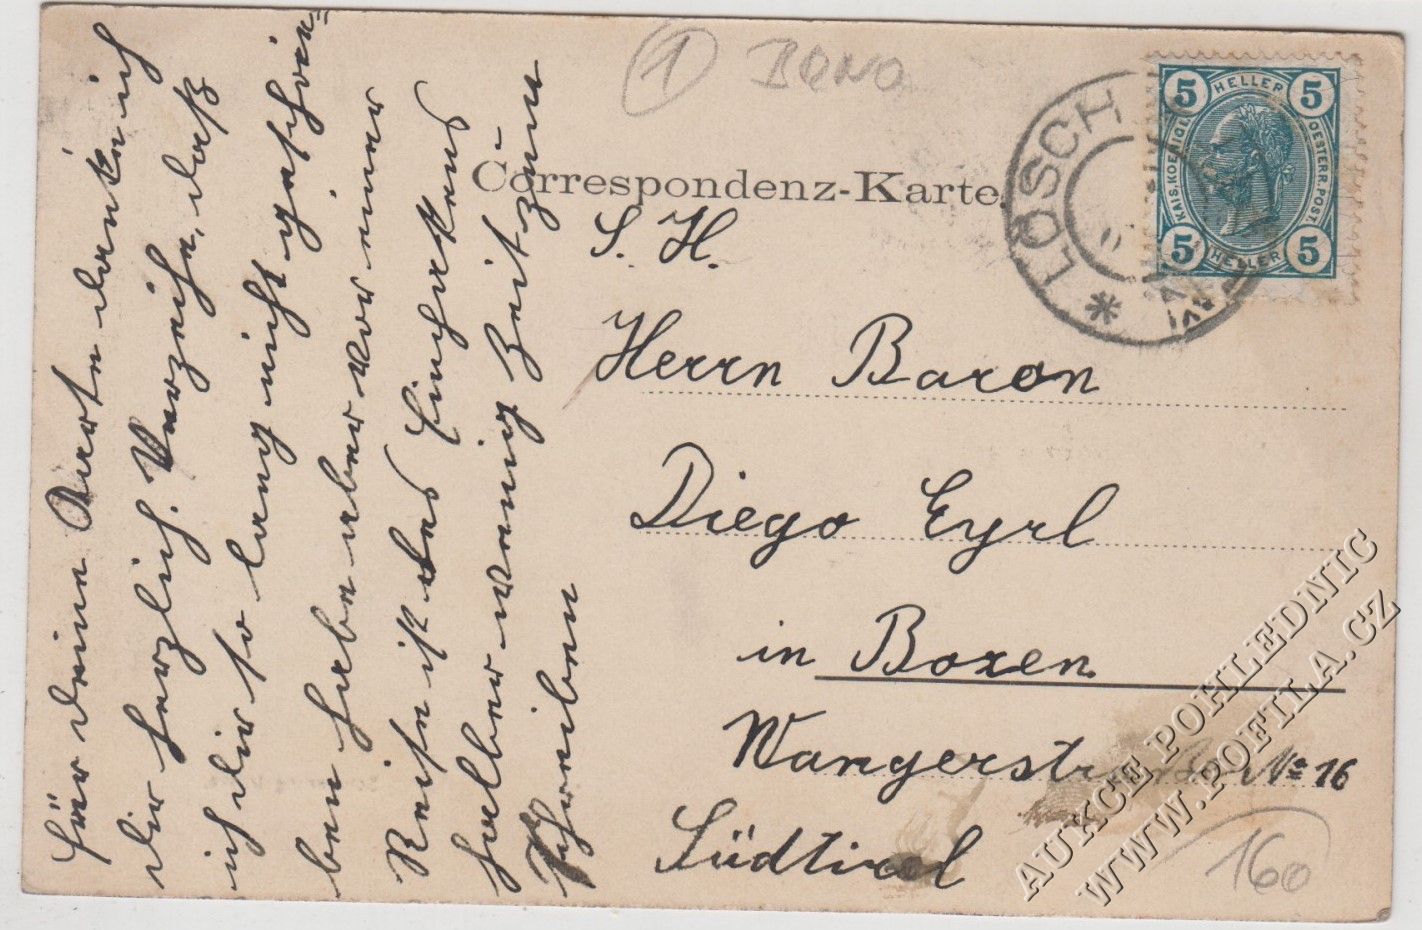 1 BRNO
Correspondenz-Karte.
5 HELLER 5
KAIS. KOENIGL. OESTERR. POST.
5 HELLER 5
* LÖSCH
S. H.
Herrn Baron
Diego Eyrl
in Bozen
Wangerstraße No 16
Südtirol
160
für deine Karte danke ich
dir herzlich. Verzeihe, daß
ich dir so lang nicht geschrie=
ben habe aber vor einer
Reise ist des
halber wenig Zeit zum
Schreiben
AUKCE POHLEDNIC
WWW.POFILA.CZ